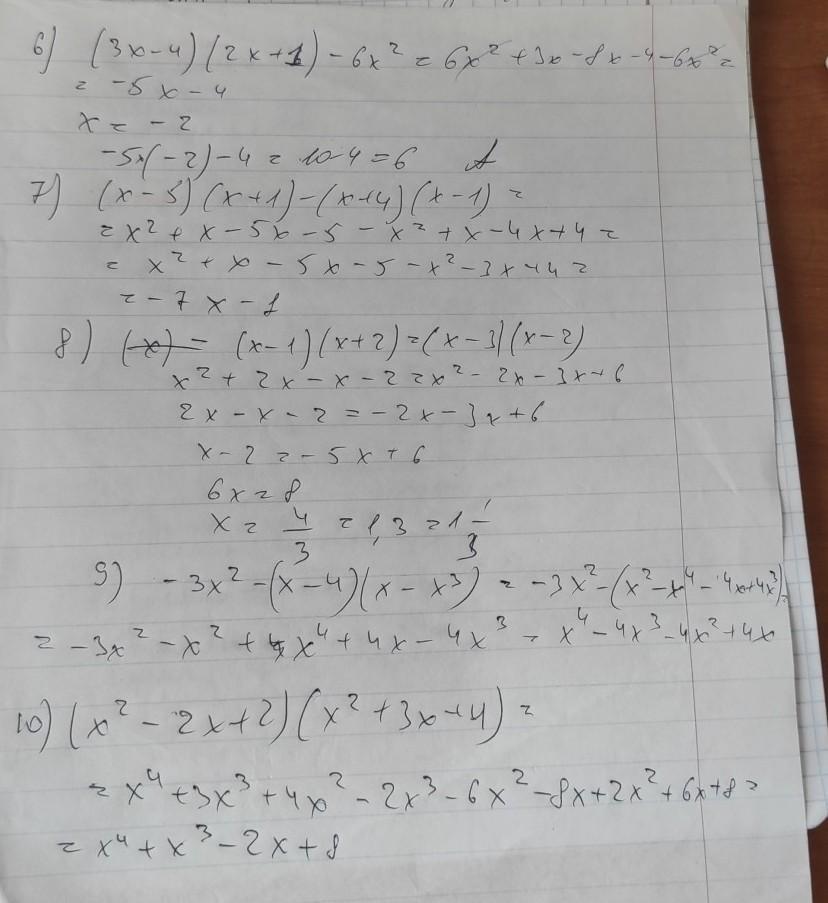 6) (3x-4)(2x+1)-6x² = 6x²+3x-8x-4-6x² =
= -5x-4
x = -2
-5·(-2)-4 = 10-4 = 6 A
7) (x-5)(x+1)-(x+4)(x-1) =
= x²+x-5x-5-x²+x-4x+4 =
= x²+x-5x-5-x²-3x+4 =
= -7x-1
8) (x) = (x-1)(x+2)=(x-3)(x-2)
x²+2x-x-2=x²-2x-3x+6
2x-x-2=-2x-3x+6
x-2=-5x+6
6x=8
x = 4/3 = 1,3 = 1 1/3
9) -3x²-(x-4)(x-x³) = -3x²-(x²-x⁴-4x+4x³)=
= -3x²-x²+x⁴+4x-4x³ = x⁴-4x³-4x²+4x
10) (x²-2x+2)(x²+3x+4) =
= x⁴+3x³+4x²-2x³-6x²-8x+2x²+6x+8 =
= x⁴+x³-2x+8